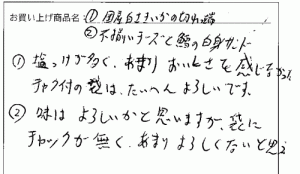 お買い上げ商品名：① 国産白さきいかの切れ端
② 不揃いチーズと鱈の白身サンド
① 塩っけが多く、あまりおいしさを感じなかった
チャック付の袋は、たいへんよろしいです。
② 味はよろしいかと思いますが、袋に
チャックが無く、あまりよろしくないと思う